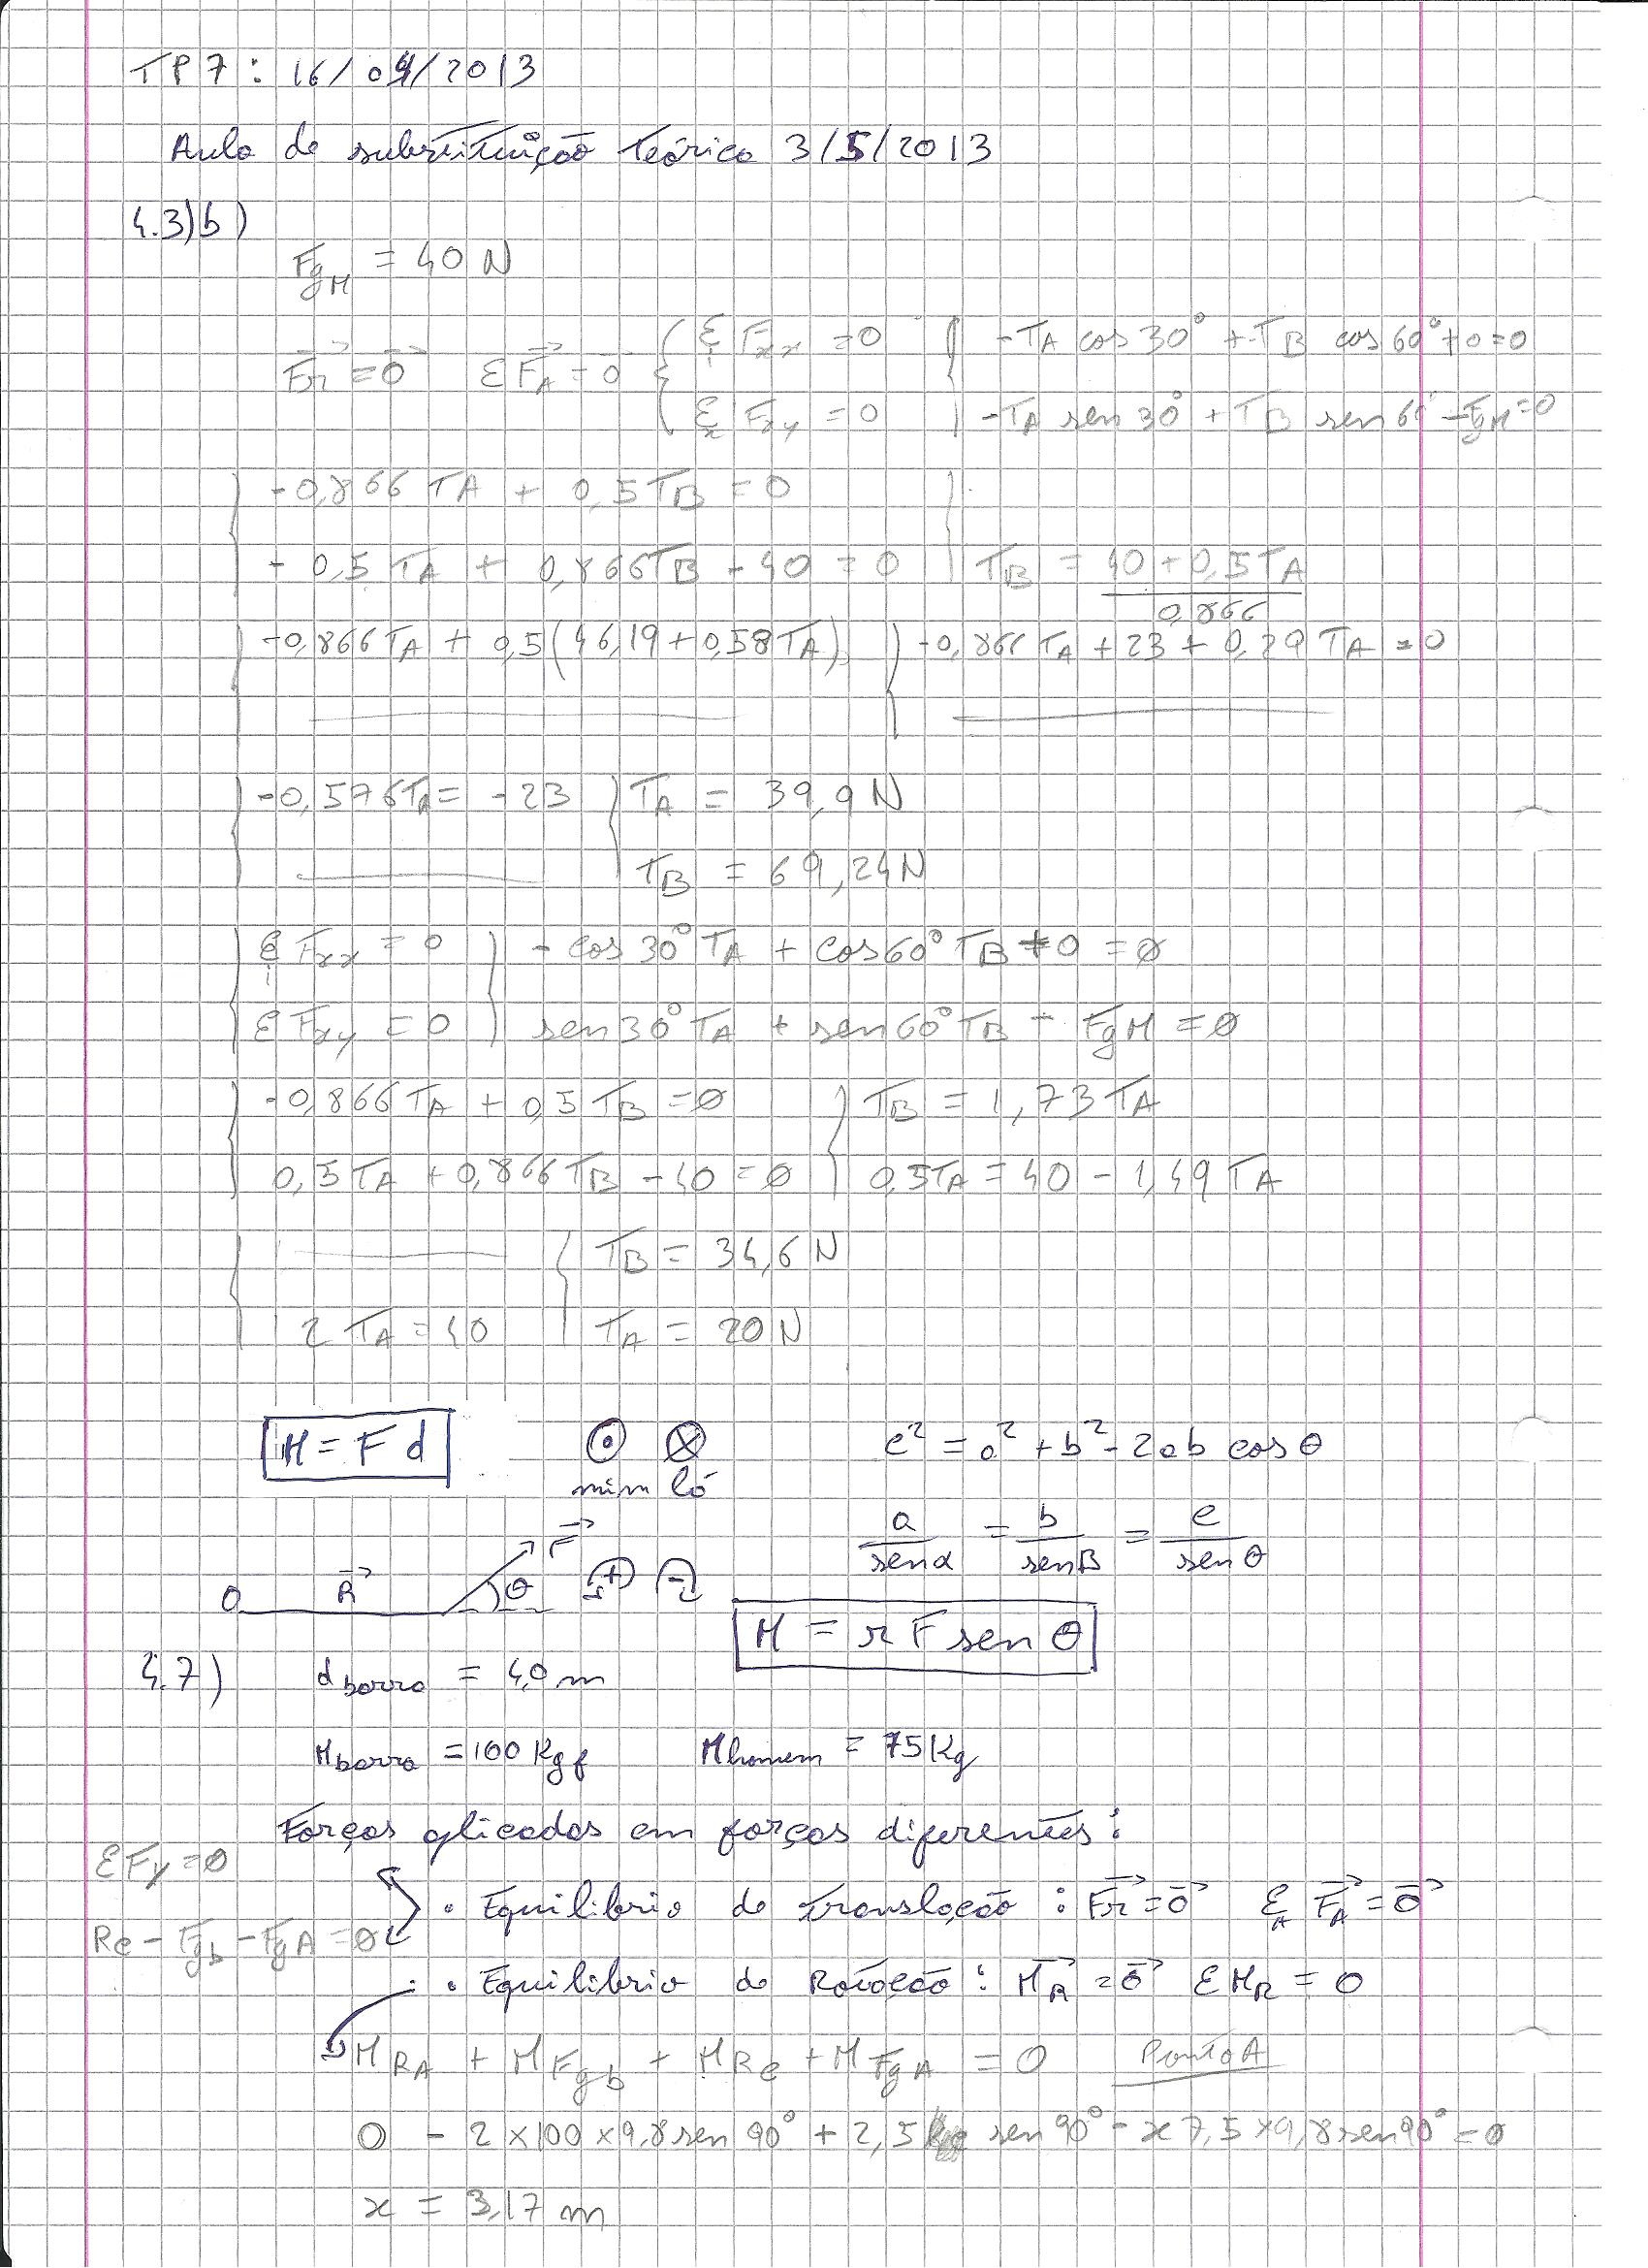 TP7: 16/04/2013
Aula de substituição teórica 3/5/2013
4.3)b)
FgM = 40 N
Fr = 0 ΣFA = 0 { ΣFxx = 0 { -TA cos 30° + TB cos 60° + 0 = 0
ΣFxy = 0 -TA sen 30° + TB sen 60° - FgM = 0
-0,866 TA + 0,5 TB = 0
- 0,5 TA + 0,866 TB - 40 = 0 TB = (40 + 0,5 TA)/0,866
-0,866 TA + 0,5 (46,19 + 0,58 TA) } -0,866 TA + 23 + 0,29 TA = 0
-0,576 TA = -23 } TA = 39,9 N
TB = 69,24 N
ΣFxx = 0 } - cos 30° TA + cos 60° TB + 0 = 0
ΣFxy = 0 } sen 30° TA + sen 60° TB - FgM = 0
-0,866 TA + 0,5 TB = 0 } TB = 1,73 TA
0,5 TA + 0,866 TB - 40 = 0 } 0,5 TA = 40 - 1,49 TA
TB = 34,6 N
2 TA = 40 TA = 20 N
M = F d ⊙ ⊗ c² = a² + b² - 2ab cos θ
mim lá
a/sen α = b/sen B = c/sen θ
F
O R θ + -
M = r F sen θ
4.7) d barra = 4,0 m
M barra = 100 Kgf M homem = 75 Kg
Forças aplicadas em forças diferentes:
ΣFy = 0
· Equilibrio de translação : Fr = 0 ΣFA = 0
Rc - Fgb - FgA = 0
· Equilibrio de Rotação : MR = 0 ΣMR = 0
MRA + MFgb + MRc + MFgA = 0 Ponto A
0 - 2 × 100 × 9,8 sen 90° + 2,5 sen 90° - x 7,5 × 9,8 sen 90° = 0
x = 3,17 m